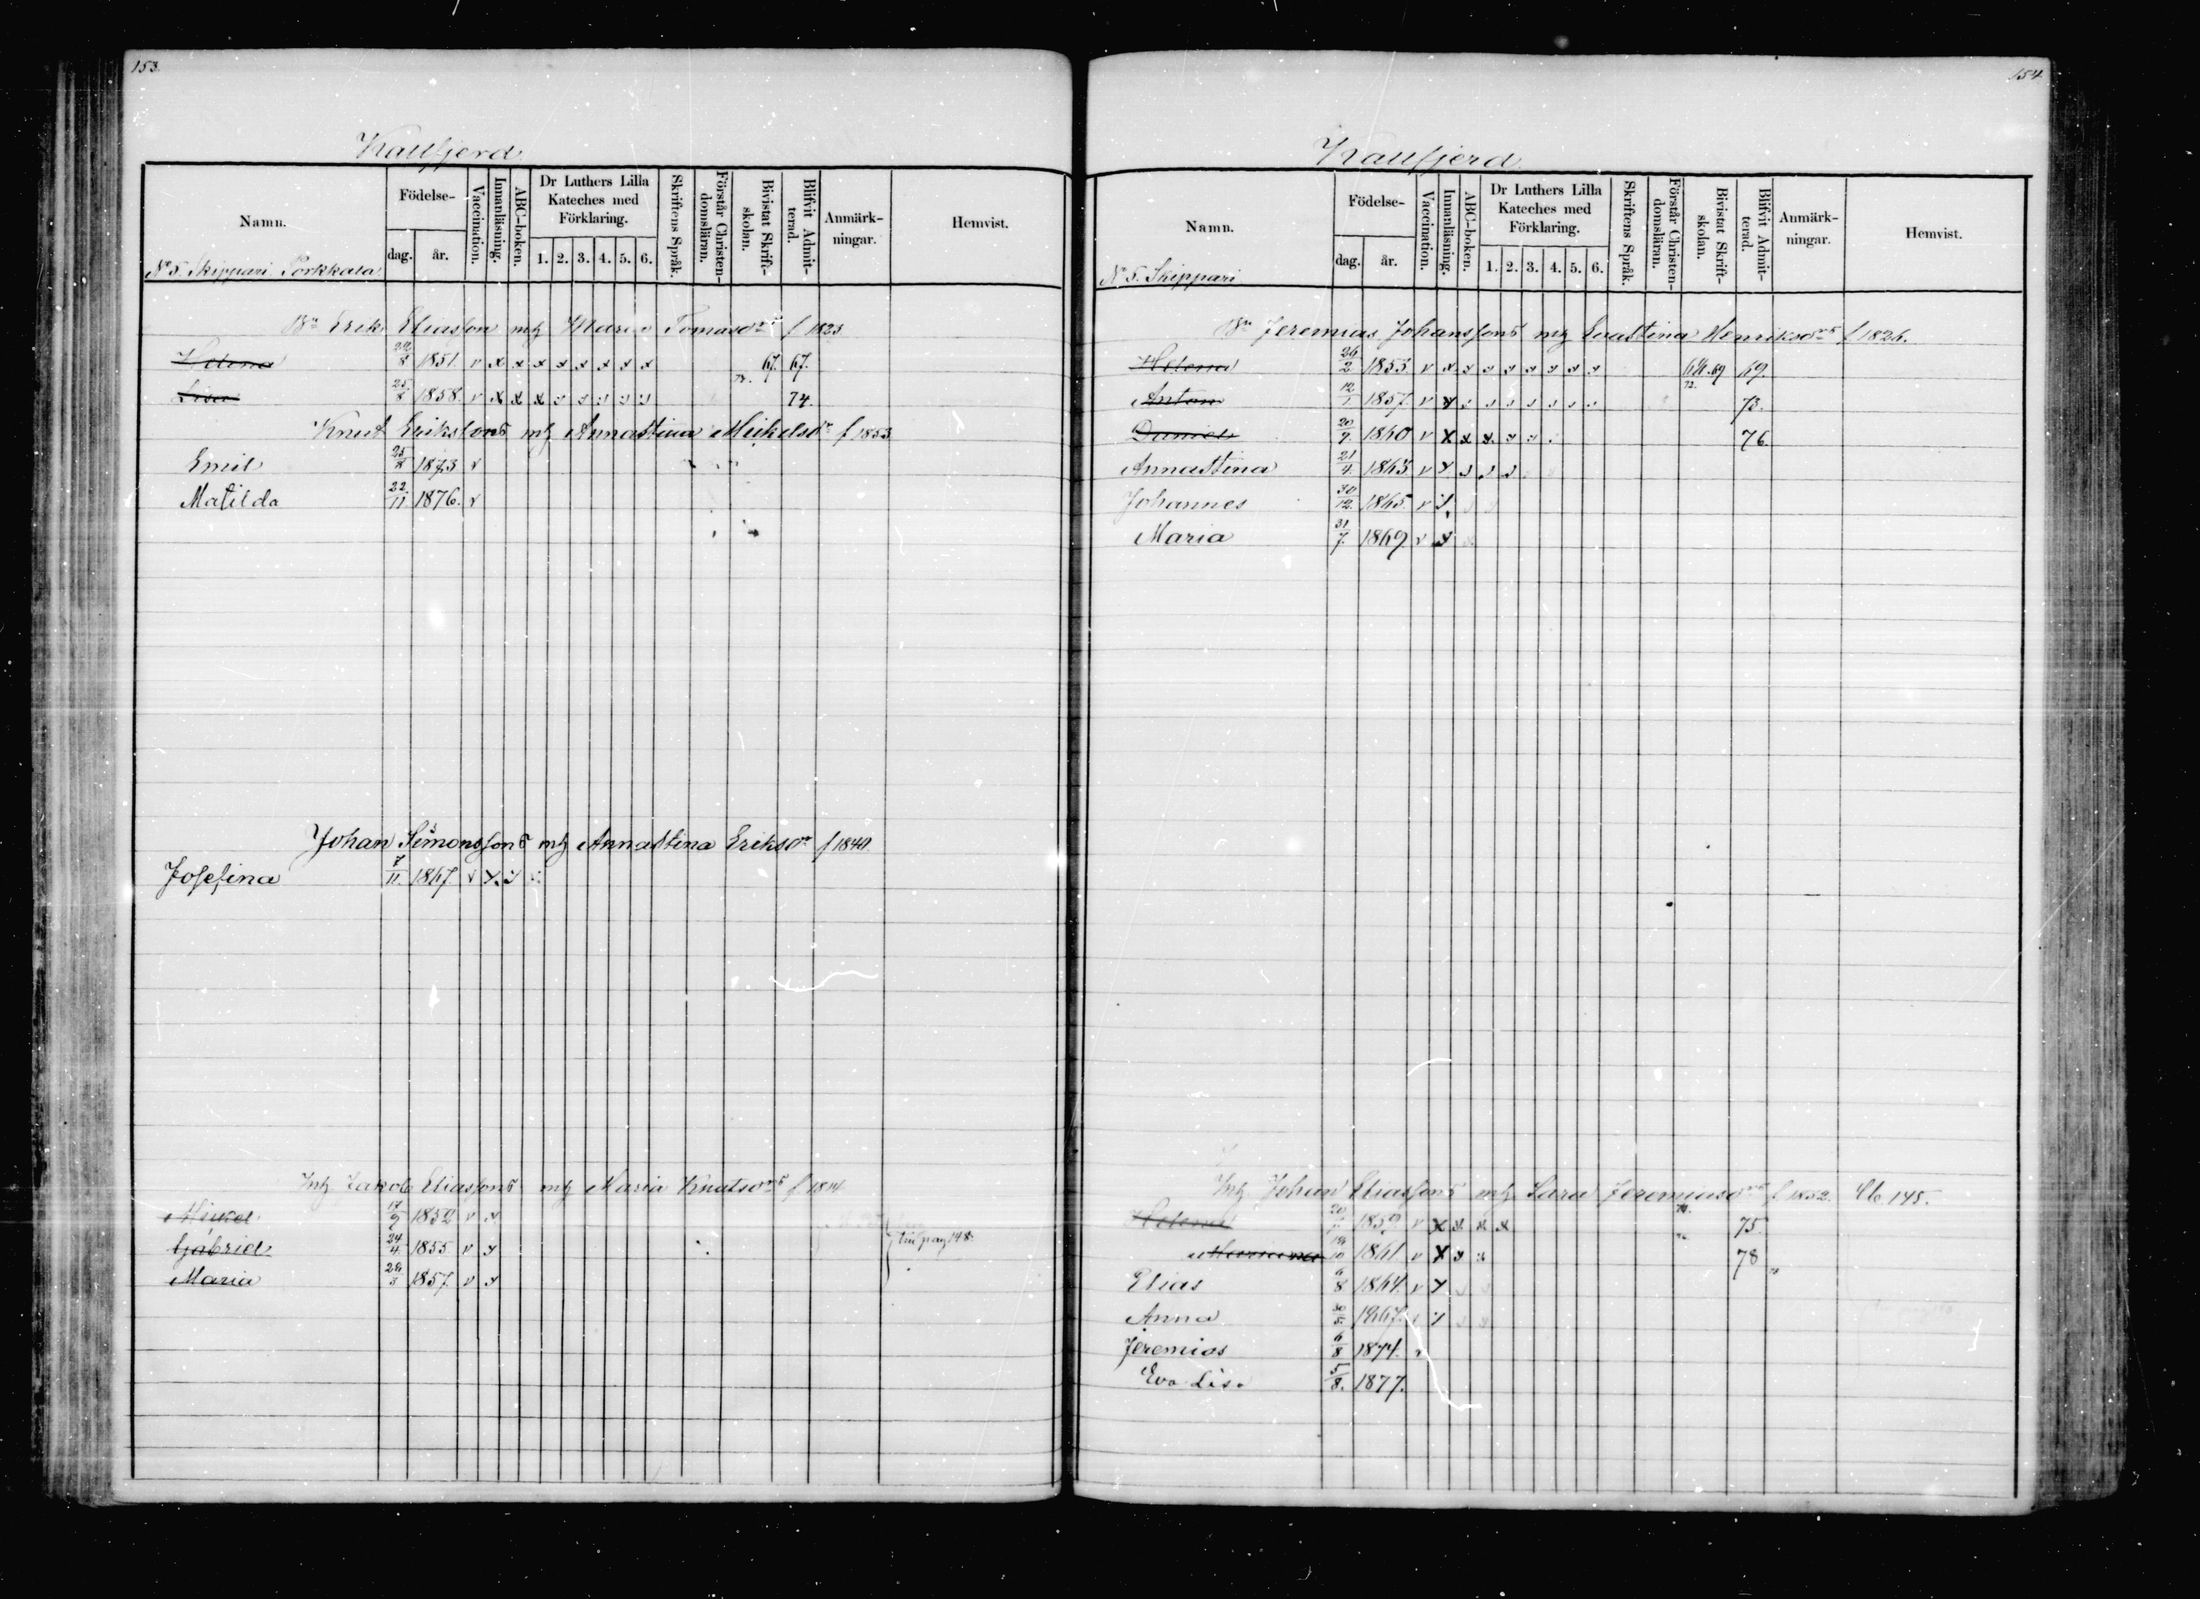 153.
Kaufjerd
Namn.
Födelse-
dag.
år.
Vaccination.
Innanläsning.
ABC-boken.
Dr Luthers Lilla Kateches med Förklaring.
1. 2. 3. 4. 5. 6.
Skriftens Språk.
Förstår Christendomsläran.
Bivistat Skriftskolan.
Blifvit Admitterad.
Anmärkningar.
Hemvist.
No 5. Skippari Porkkala
Bn Erik Eliasson mg Maria Tomasdr f 1823
Helena 22/8 1851. v x x x x x x x x 67. 67.
Lisa 25/8 1858. v x x x 74.
Knut Eriksons mg Annastina Mickelsdr f 1853
Emil 25/8 1873 v
Matilda 22/11 1876. v
Johan Simonssons mg Annastina Eriksdr f 1840.
Josefina 7/11. 1867. v
Inh Jakob Eliassons mg Maria Knutsdr f
Mickel 17/9 1852 v
Gabriel 24/4. 1855 v
Maria 1857. v
154
Kaufjerd
Namn.
Födelse-
dag.
år.
Vaccination.
Innanläsning.
ABC-boken.
Dr Luthers Lilla Kateches med Förklaring.
1. 2. 3. 4. 5. 6.
Skriftens Språk.
Förstår Christendomsläran.
Bivistat Skriftskolan.
Blifvit Admitterad.
Anmärkningar.
Hemvist.
No 5. Skippari
Bn Jeremias Johanssons mg Evastina Henriksdr f 1826.
Helena 26/2 1853. v 69.
Anton 12/1 1857. v 73.
Daniel 20/9. 1860 v 76.
Annastina 21/4. 1863 v
Johannes 30/12. 1865. v
Maria 31/7. 1869. v
Inh Johan Eliassons mg Sara Jeremiasdr f 1832. 145.
Helena 1859. v 75.
1861. v 78
Elias 6/8 1864. v
Anna 30/5. 1867.
Jeremias 6/8 1874.
Eva Lisa 5/8. 1877.